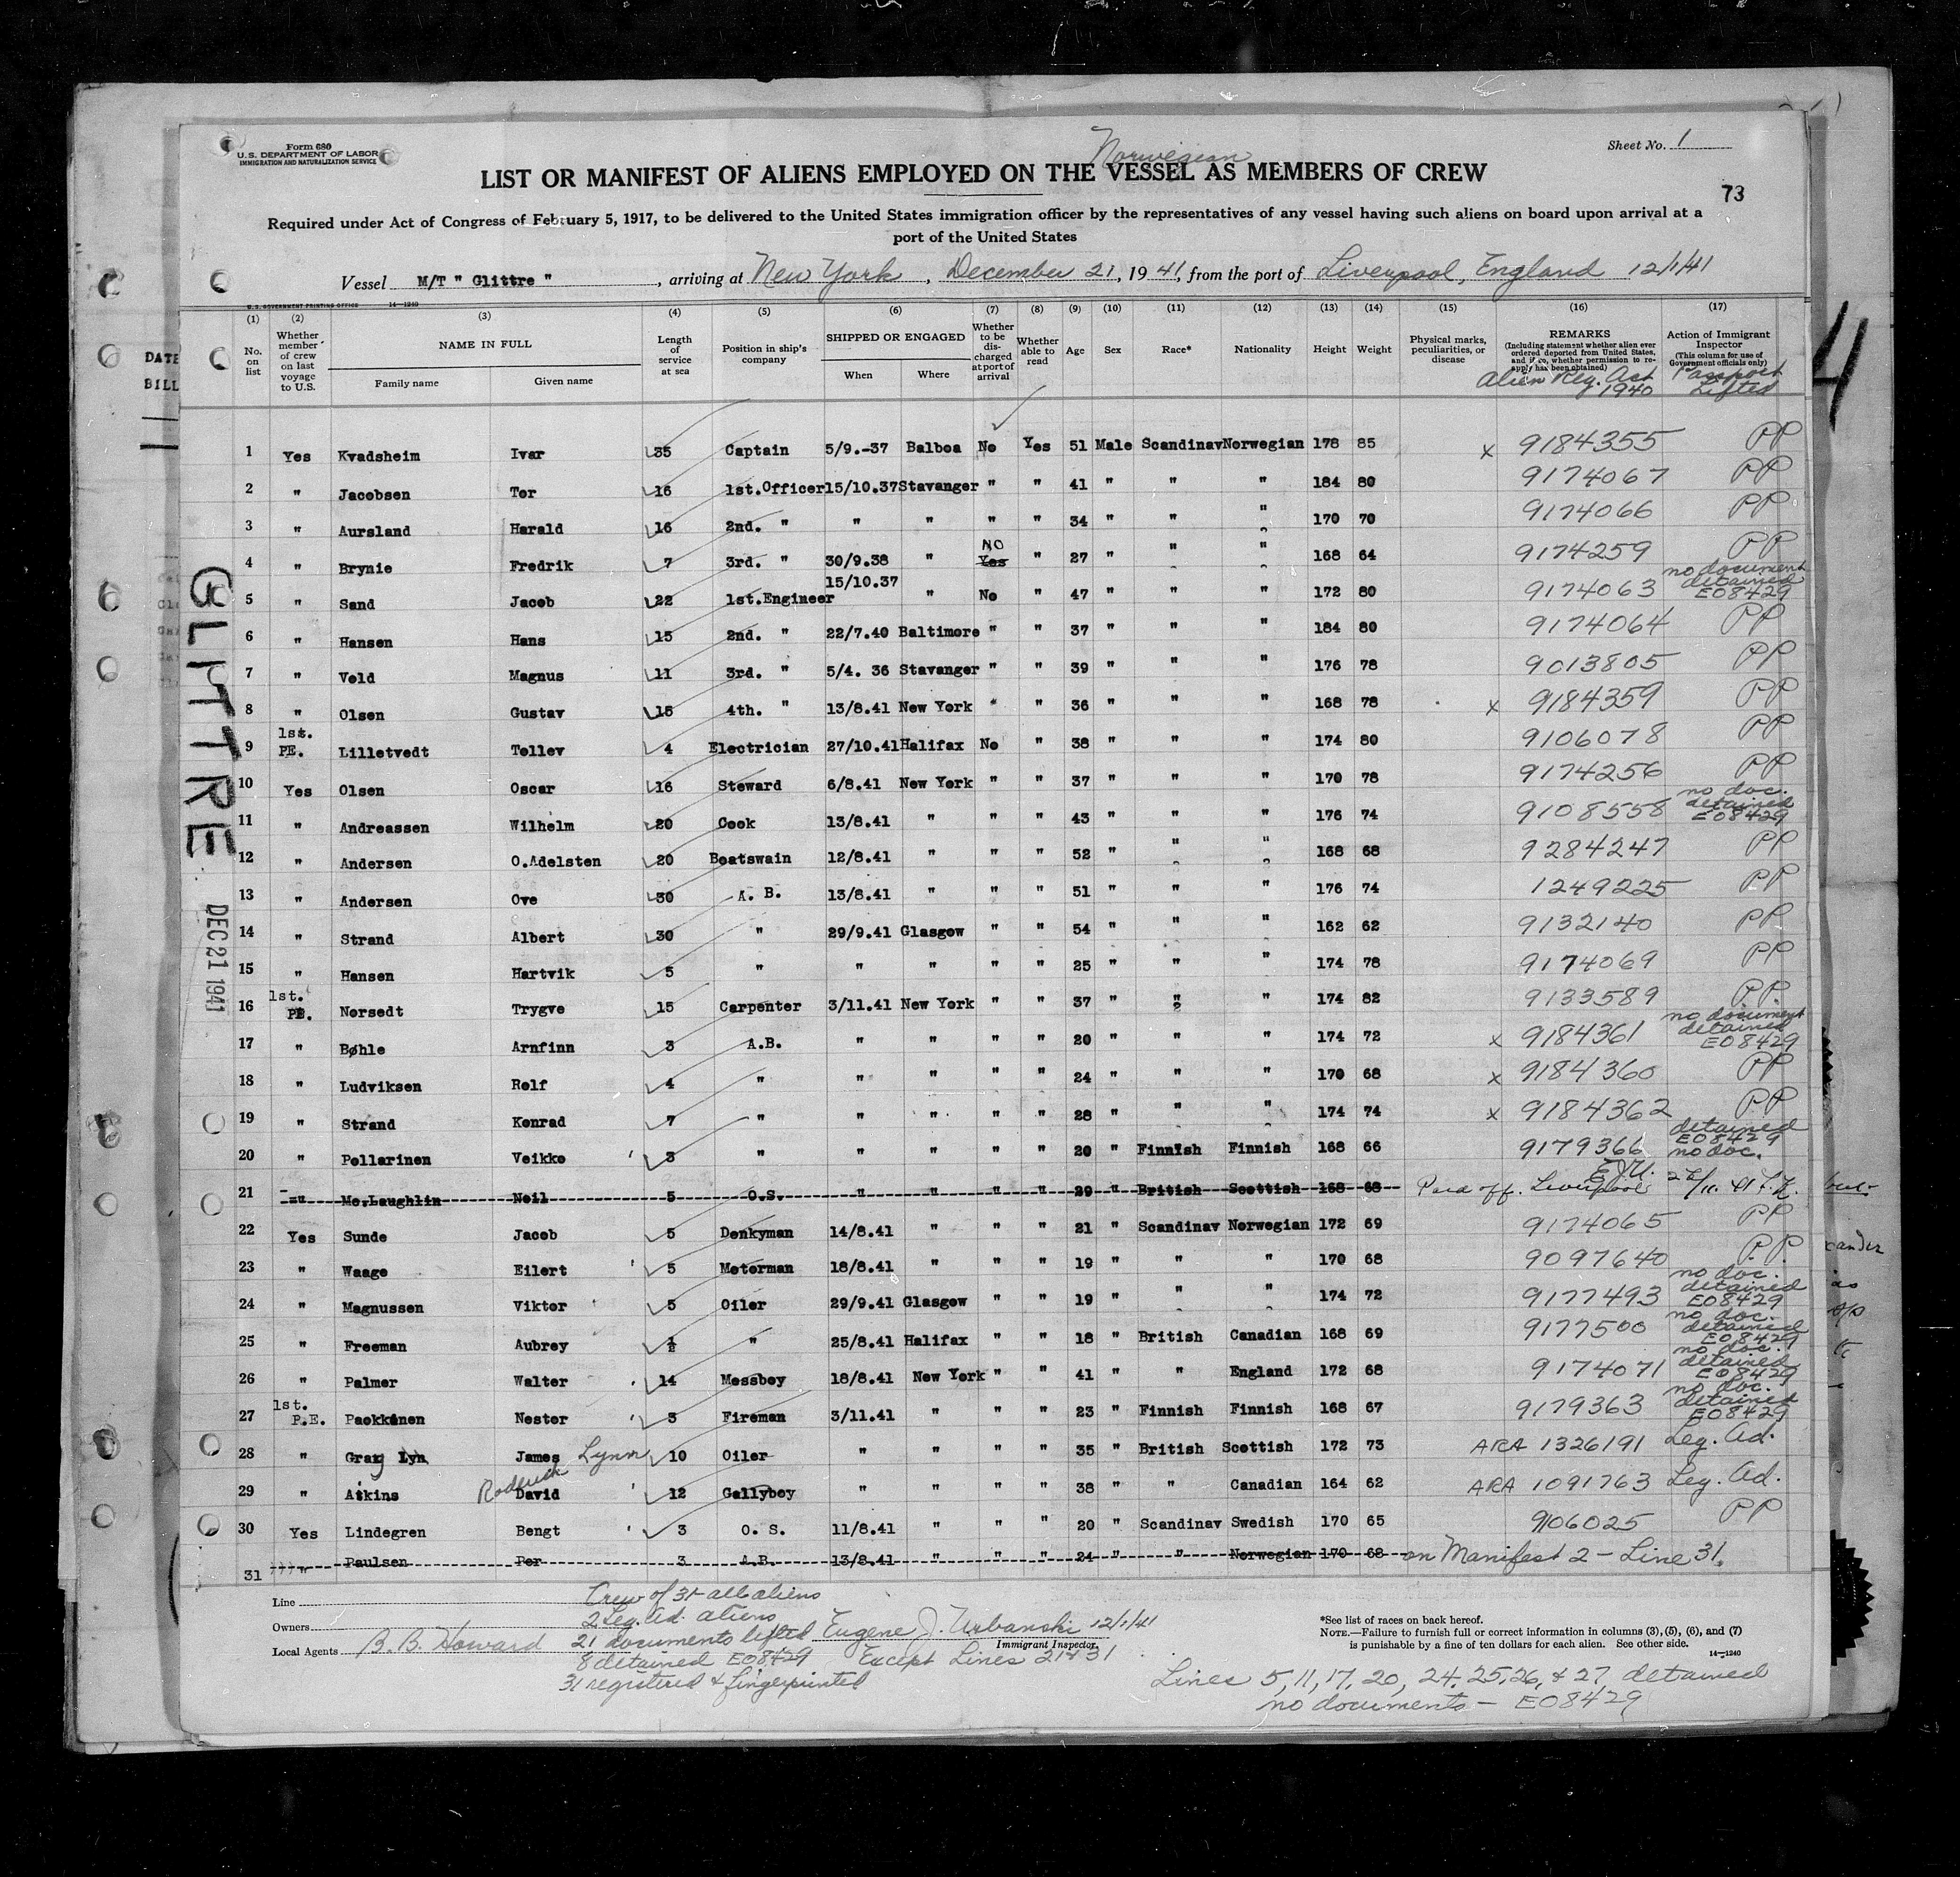 Form 680
U.S. DEPARTMENT OF LABOR
IMMIGRATION AND NATURALIZATION SERVICE
Sheet No. 1
Norwegian
LIST OR MANIFEST OF ALIENS EMPLOYED ON THE VESSEL AS MEMBERS OF CREW
73
Required under Act of Congress of February 5, 1917, to be delivered to the United States immigration officer by the representatives of any vessel having such aliens on board upon arrival at a
port of the United States
Vessel M/T " Glittre " , arriving at New York , December 21 , 19 41 , from the port of Liverpool, England 12/1/41
U. S. GOVERNMENT PRINTING OFFICE 14—1240
(1) (2) (3) (4) (5) (6) (7) (8) (9) (10) (11) (12) (13) (14) (15) (16) (17)
No. on list
Whether member of crew on last voyage to U.S.
NAME IN FULL
Family name Given name
Length of service at sea
Position in ship's company
SHIPPED OR ENGAGED
When Where
Whether to be discharged at port of arrival
Whether able to read
Age Sex Race* Nationality Height Weight
Physical marks, peculiarities, or disease
REMARKS
(Including statement whether alien ever ordered deported from United States, and if so, whether permission to reapply has been obtained)
Alien Reg. Act 1940
Action of Immigrant Inspector
(This column for use of Government officials only)
Passport Lifted
1 Yes Kvadsheim Ivar 35 Captain 5/9.-37 Balboa No Yes 51 Male Scandinav Norwegian 178 85 x 9184355 PP
2 " Jacobsen Tor 16 1st.Officer 15/10.37 Stavanger " " 41 " " " 184 80 9174067 PP
3 " Aursland Harald 16 2nd. " " " " " 34 " " " 170 70 9174066 PP
4 " Brynie Fredrik 7 3rd. " 30/9.38 " NO Yes " 27 " " " 168 64 9174259 PP
5 " Sand Jacob 22 1st.Engineer 15/10.37 " No " 47 " " " 172 80 9174063 no document detained E08429
6 " Hansen Hans 15 2nd. " 22/7.40 Baltimore " " 37 " " " 184 80 9174064 PP
7 " Veld Magnus 11 3rd. " 5/4. 36 Stavanger " " 39 " " " 176 78 9013805 PP
8 " Olsen Gustav 15 4th. " 13/8.41 New York " " 36 " " " 168 78 x 9184359 PP
9 1st. PE. Lilletvedt Tellev 4 Electrician 27/10.41 Halifax No " 38 " " " 174 80 9106078 PP
10 Yes Olsen Oscar 16 Steward 6/8.41 New York " " 37 " " " 170 78 9174256 PP
11 " Andreassen Wilhelm 20 Cook 13/8.41 " " " 43 " " " 176 74 9108558 no doc. detained E08429
12 " Andersen O.Adelsten 20 Boatswain 12/8.41 " " " 52 " " " 168 68 9284247 PP
13 " Andersen Ove 30 A. B. 13/8.41 " " " 51 " " " 176 74 1249225 PP
14 " Strand Albert 30 " 29/9.41 Glasgow " " 54 " " " 162 62 9132140 PP
15 " Hansen Hartvik 5 " " " " " 25 " " " 174 78 9174069 PP
16 1st. PE. Norsedt Trygve 15 Carpenter 3/11.41 New York " " 37 " " " 174 82 9133589 P.P.
17 " Bøhle Arnfinn 3 A.B. " " " " 20 " " " 174 72 x 9184361 no document detained E08429
18 " Ludviksen Rolf 4 " " " " " 24 " " " 170 68 x 9184360 PP
19 " Strand Konrad 7 " " " " " 28 " " " 174 74 x 9184362 P.P.
20 " Pellarinen Veikko 3 " " " " " 20 " Finnish Finnish 168 66 9179366 detained E08429 no doc.
21 " Mc.Laughlin Neil 5 O.S. " " " " 29 " British Scottish 168 68 Paid off. Liverpool E.J.U.
22 Yes Sunde Jacob 5 Donkyman 14/8.41 " " " 21 " Scandinav Norwegian 172 69 9174065 PP
23 " Waage Eilert 5 Motorman 18/8.41 " " " 19 " " " 170 68 9097640 P.P.
24 " Magnussen Viktor 5 Oiler 29/9.41 Glasgow " " 19 " " " 174 72 9177493 no doc. detained E08429
25 " Freeman Aubrey ½ " 25/8.41 Halifax " " 18 " British Canadian 168 69 9177500 no doc. detained E08429
26 " Palmer Walter 14 Messboy 18/8.41 New York " " 41 " " England 172 68 9174071 no doc. detained E08429
27 1st. P.E. Paokkinen Nestor 3 Fireman 3/11.41 " " " 23 " Finnish Finnish 168 67 9179363 no doc. detained E08429
28 " Gray Lyn James Lynn 10 Oiler " " " " 35 " British Scottish 172 73 ARA 1326191 Leg. Ad.
29 " Atkins Roderick David 12 Gallyboy " " " " 38 " " Canadian 164 62 ARA 1091763 Leg. Ad.
30 Yes Lindegren Bengt 3 O. S. 11/8.41 " " " 20 " Scandinav Swedish 170 65 9106025 PP
31 " Paulsen Per 3 A.B. 13/8.41 " " " 24 " " Norwegian 170 68 on Manifest 2 - Line 31.
Line
Owners
Local Agents B. B. Howard
Crew of 31 all aliens
2 Leg. Ad. aliens
21 documents lifted
8 detained E08429
31 registered & fingerprinted
Eugene J. Urbanski 12/1/41
Immigrant Inspector.
Except Lines 21 & 31
*See list of races on back hereof.
NOTE.—Failure to furnish full or correct information in columns (3), (5), (6), and (7)
is punishable by a fine of ten dollars for each alien. See other side.
14—1240
Lines 5, 11, 17, 20, 24, 25, 26, & 27, detained
no documents - E08429
GLITTRE
DEC 21 1941
DATE
BILL
4